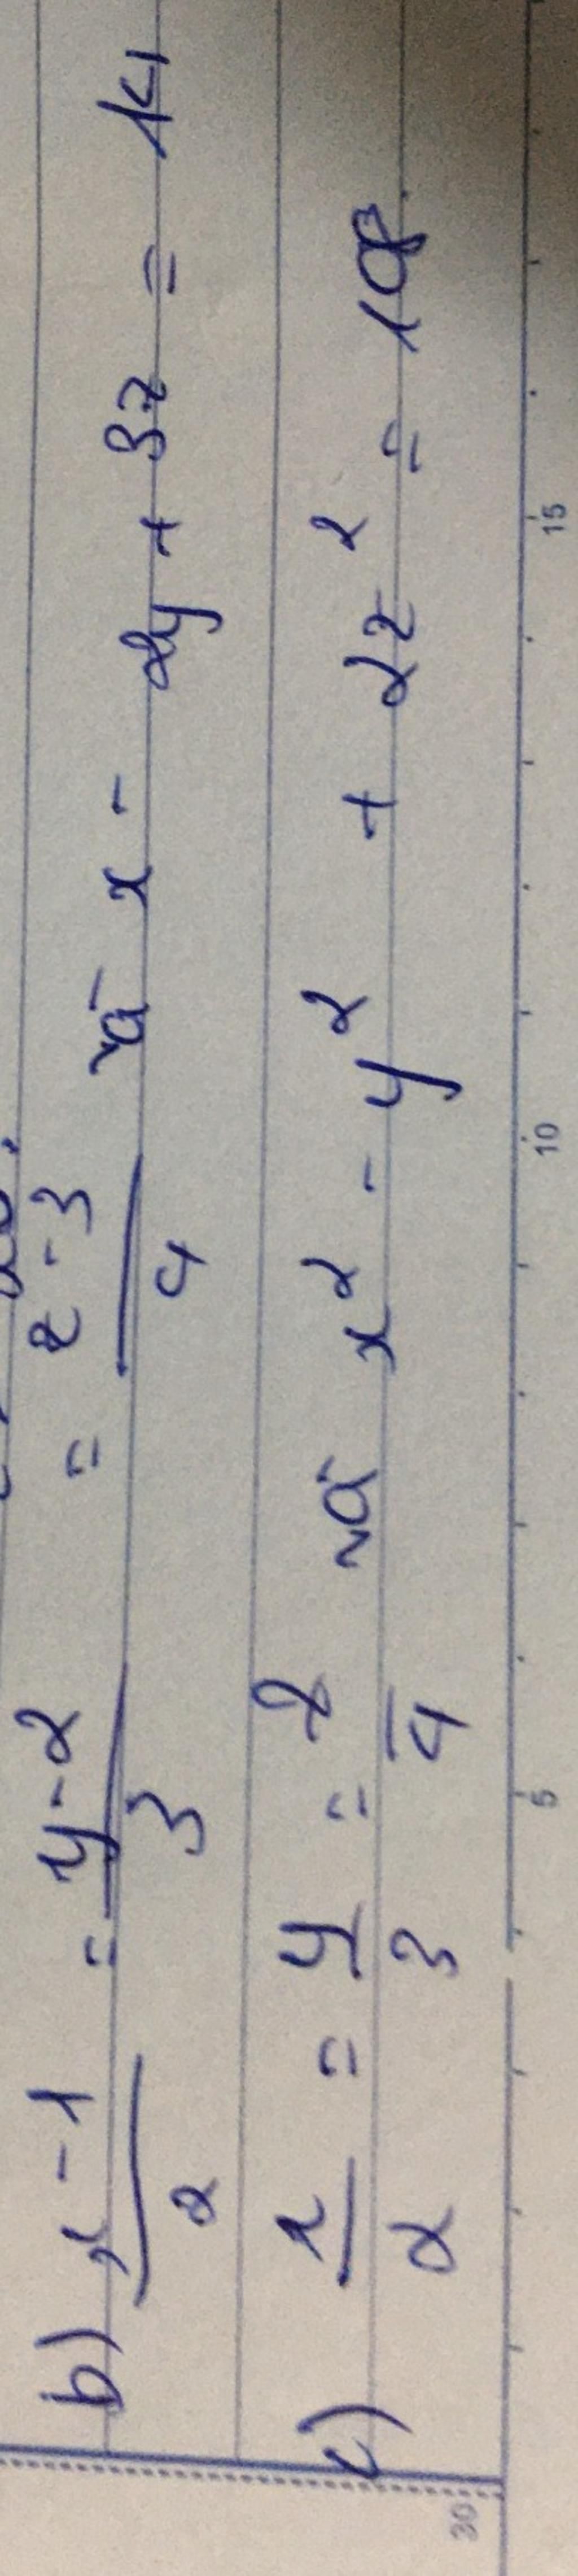 b) x - 1 / 2 = y - 2 / 3 = z - 3 / 4 và x - 2y + 3z = 14
c) x / 2 = y / 3 = z / 4 và x² - y² + 2z² = 108
5 10 15
30